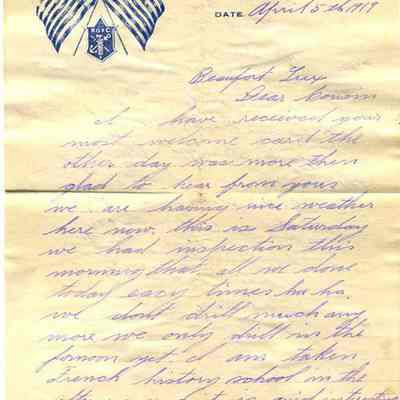 K of C
DATE April 5th 1919
Beaufort Trex
Dear Cousin
I have received your
most welcome card the
other day was more then
glad to hear from yous
we are having nice weather
here now. this is Saturday
we had inspection this
morning that all we done
today easy times ha ha.
we don't drill much any
more we only drill in the
fornoon yet. I am taken
French history school in the
and